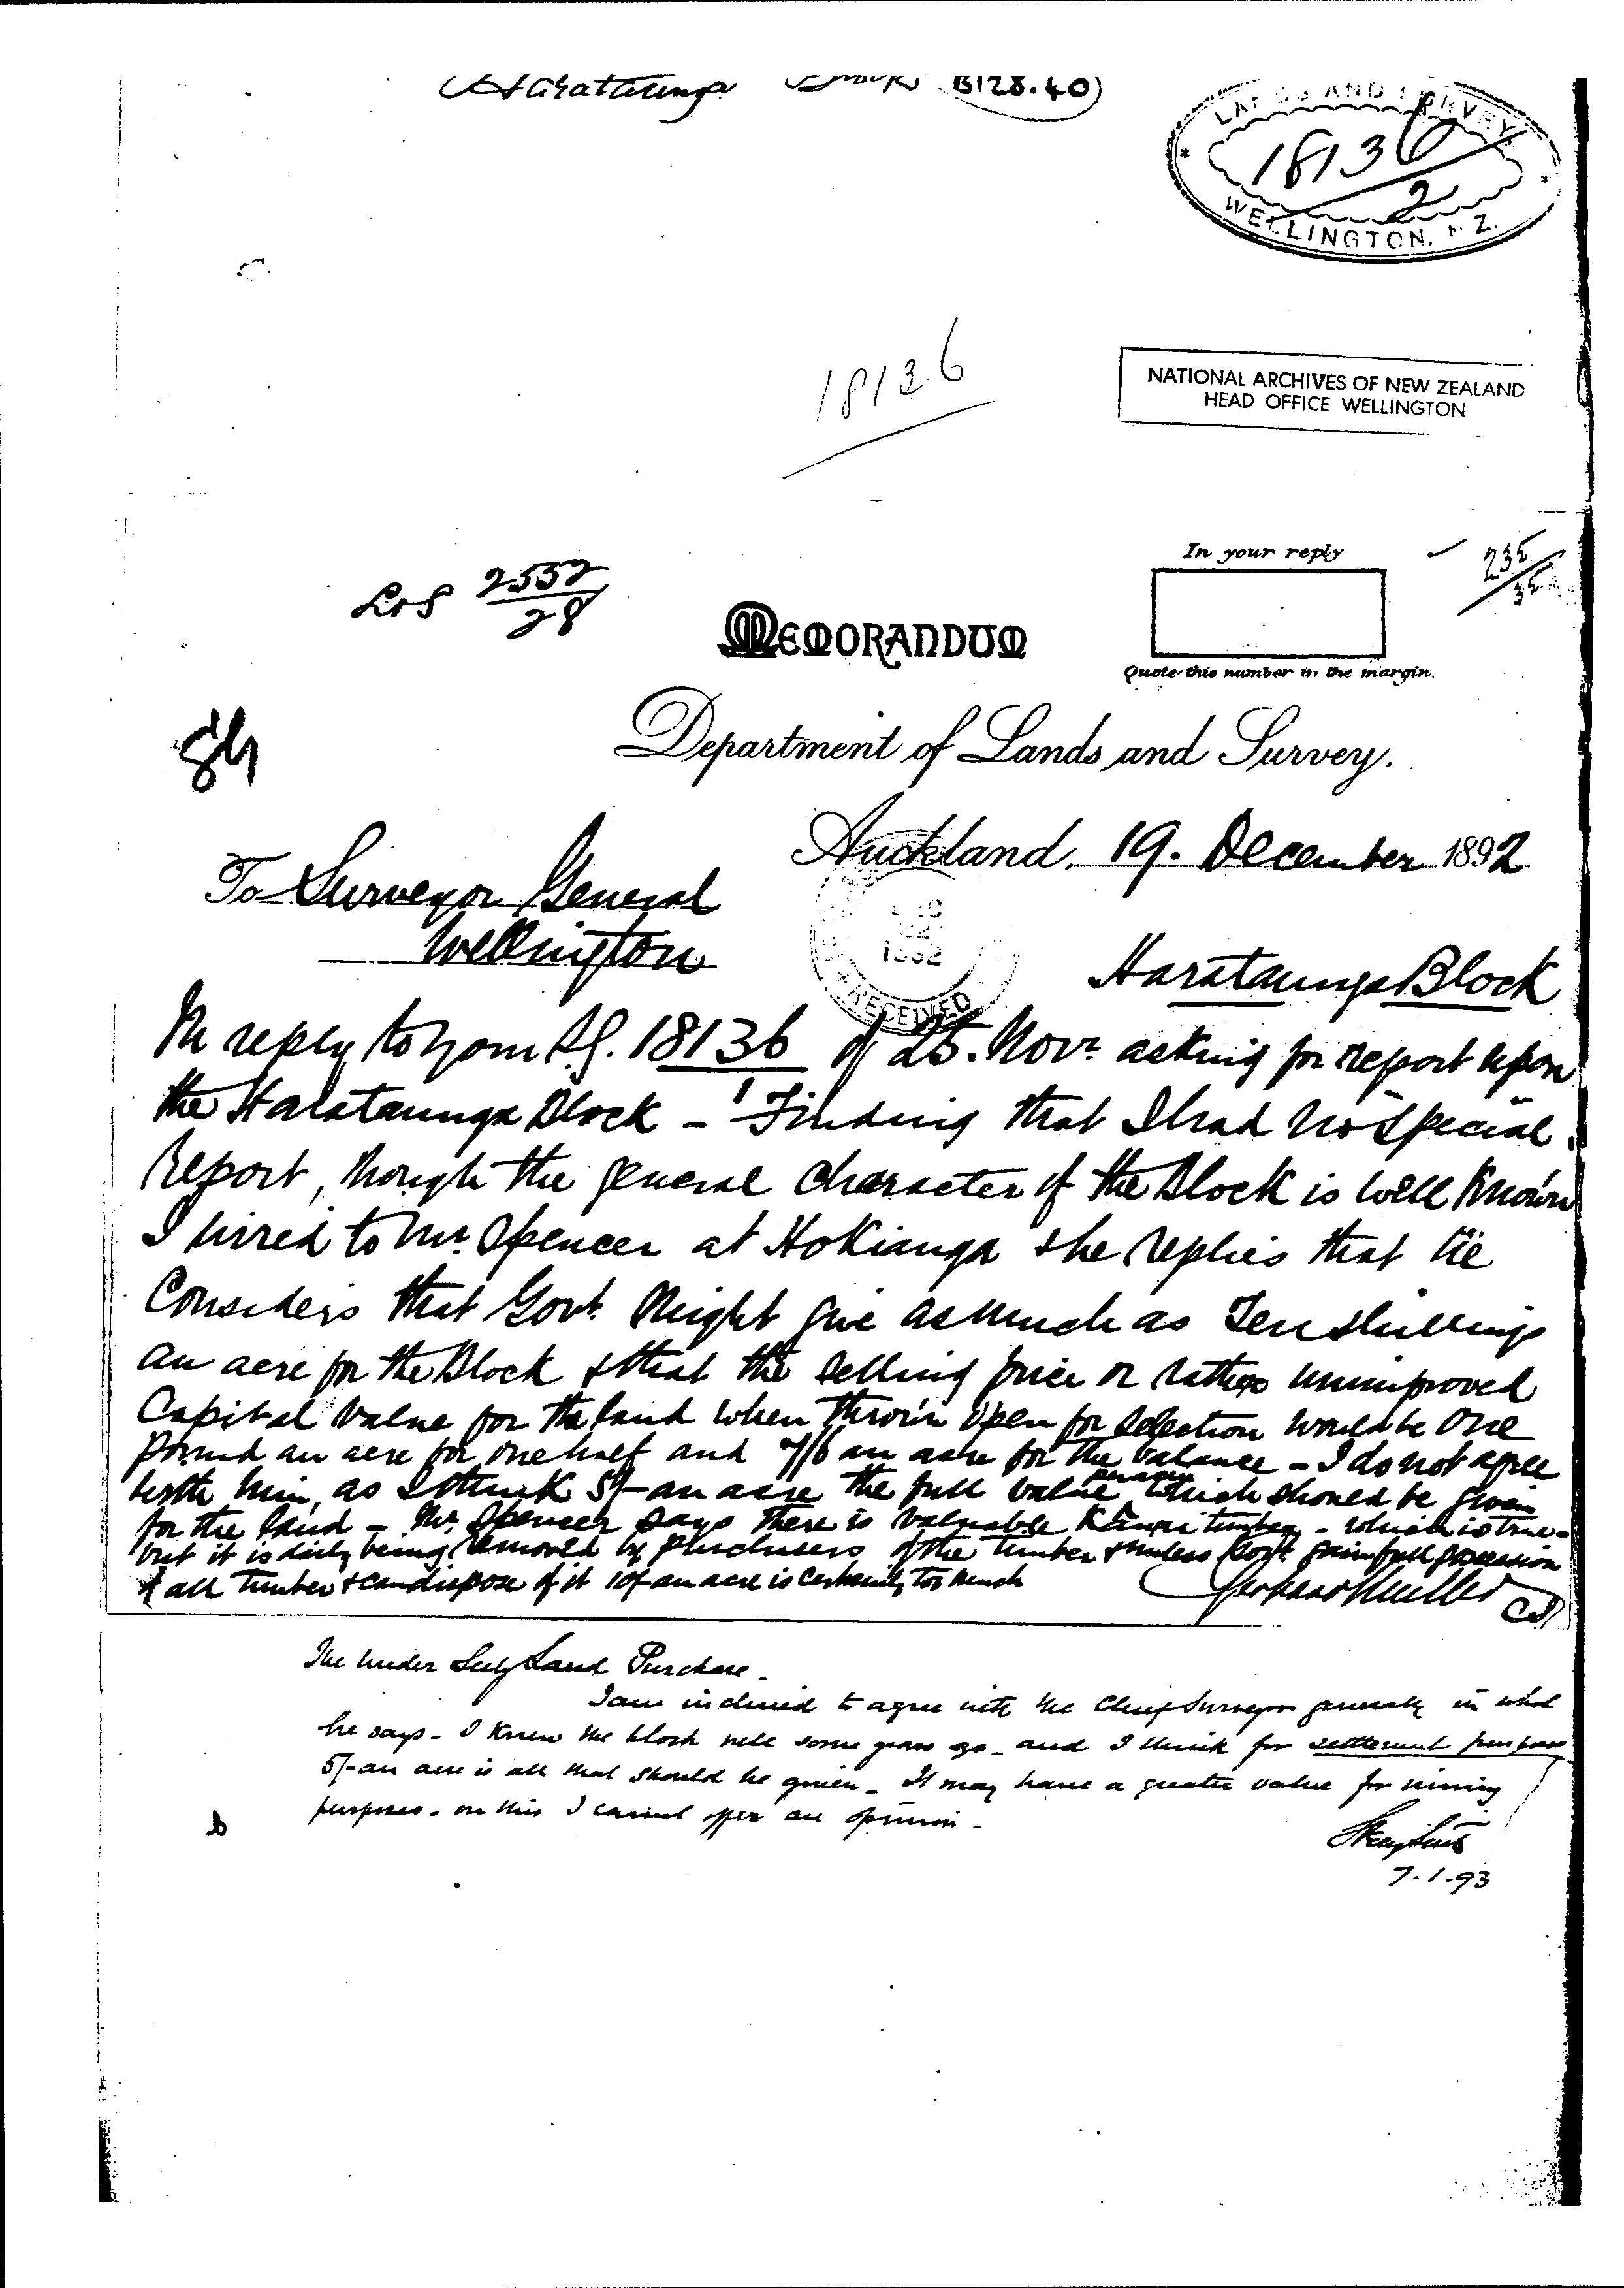 Harataunga Block B128.40
LANDS AND SURVEY
18136/2
WELLINGTON. N.Z.
18136
NATIONAL ARCHIVES OF NEW ZEALAND
HEAD OFFICE WELLINGTON
In your reply
235/35
L&S 2532/28
MEMORANDUM
Quote this number in the margin.
Department of Lands and Survey.
84
Auckland, 19. December 1892
To Surveyor General
Wellington
1892
RECEIVED
Harataunga Block
In reply to your S.G. 18136/1 of 25. Novr. asking for report upon
the Harataunga Block - Finding that I had no special
Report, though the general character of the Block is well known
I wired to Mr. Spencer at Hokianga & he replies that he
Considers that Govt. might give as much as Ten shillings
an acre for the Block & that the selling price or rather unimproved
Capital value for the land when thrown open for selection would be One
pound an acre for one half and 7/6 an acre for the balance - I do not agree
with him, as I think 5/- an acre the full value per acre which should be given
for the land - Mr. Spencer says there is valuable Kauri timber - which is true -
but it is daily being removed by purchasers of the timber & unless Govt. gain full possession
of all timber & can dispose of it 10/- an acre is certainly too much
Gerhard Mueller
CS
The Under Secy Land Purchase -
I am inclined to agree with the Chief Surveyor generally in what
he says - I knew the block well some years ago - and I think for settlement purposes
5/- an acre is all that should be given - It may have a greater value for mining
purposes - on this I cannot offer an opinion -
S Percy Smith
7.1.93